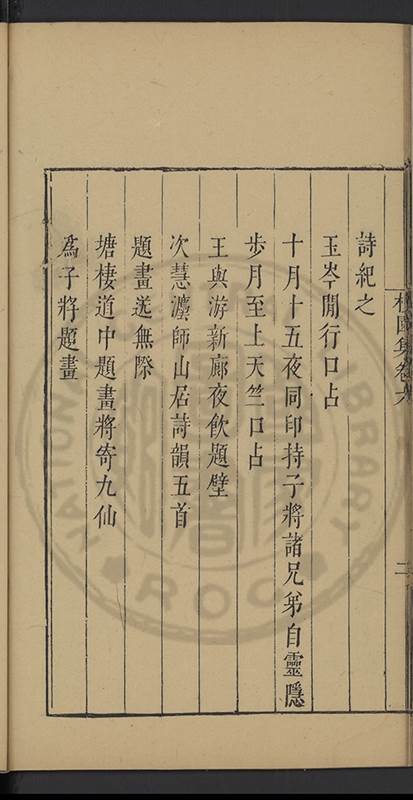 檀園集卷六
二
詩紀之
玉岑閒行口占
十月十五夜同印持子將諸兄弟自靈隱
步月至上天竺口占
王與游新廊夜飲題壁
次慧灋師山居詩韻五首
題畫送無際
塘棲道中題畫將寄九仙
為子將題畫
NATIONAL
LIBRARY
ROC